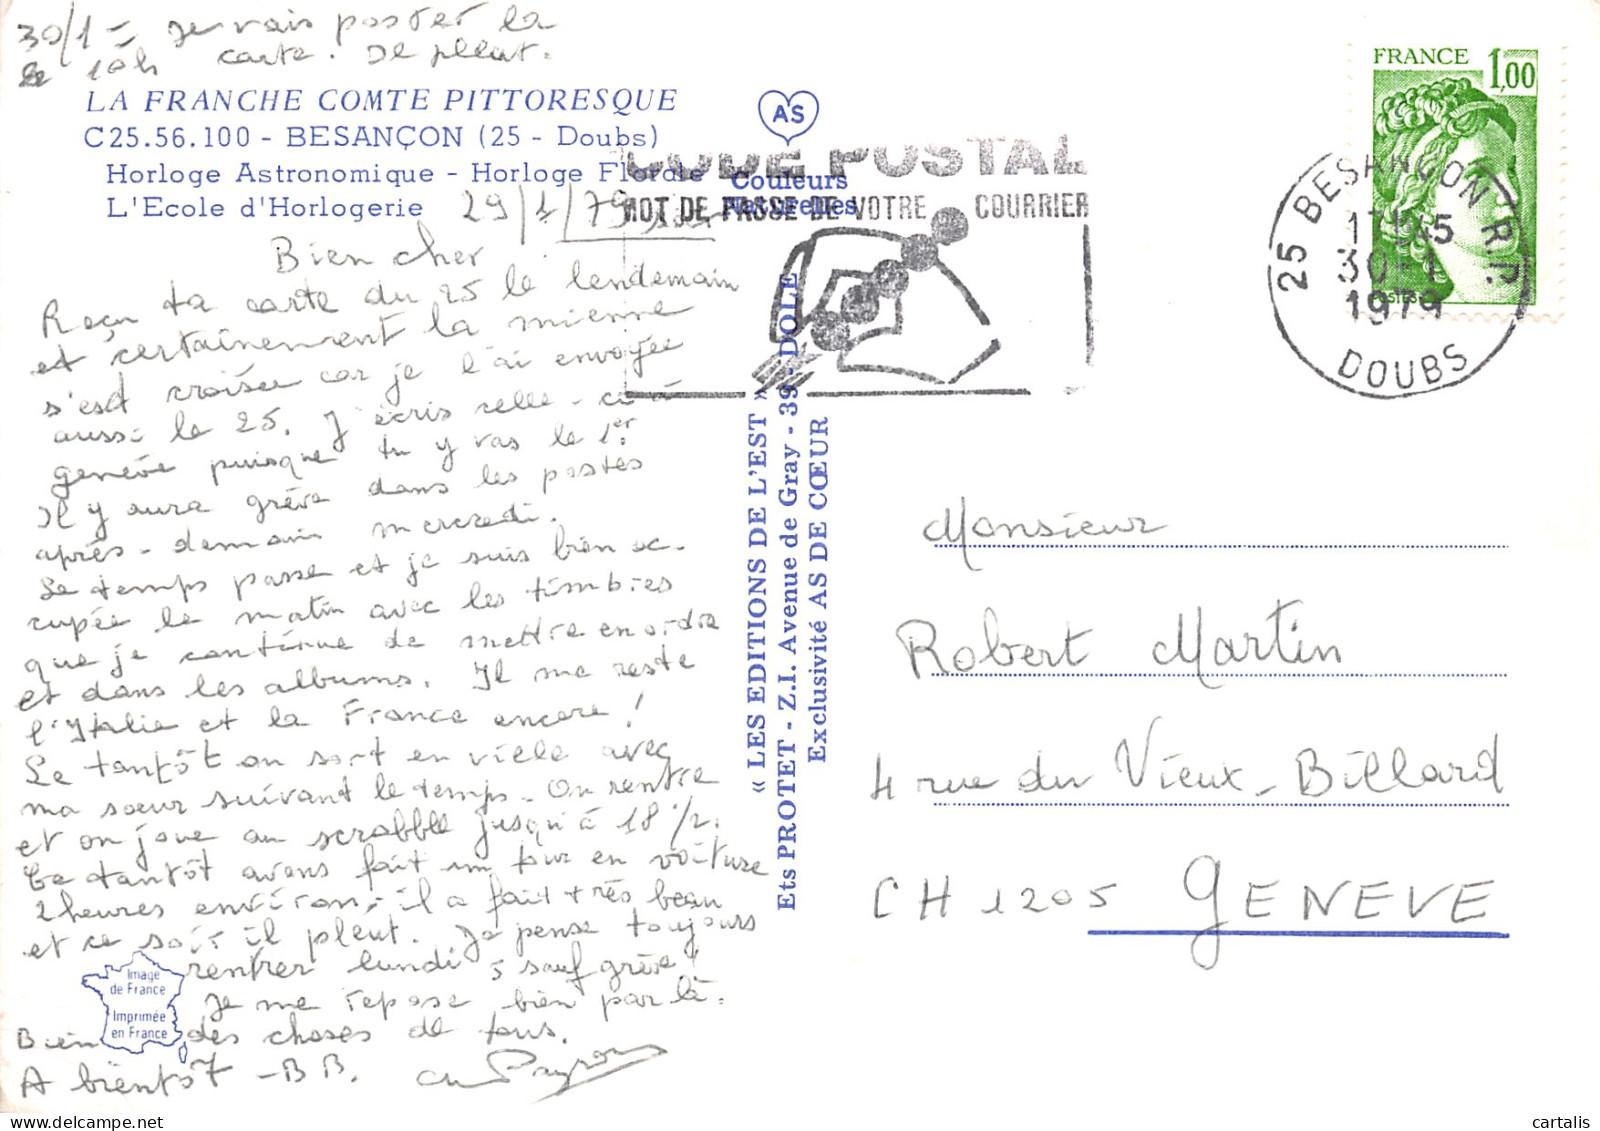 30/1 - Je vais poster la
10h carte. Il pleut.
LA FRANCHE COMTE PITTORESQUE
C25.56.100 - BESANÇON (25 - Doubs)
Horloge Astronomique - Horloge Florale
L'Ecole d'Horlogerie
29/1/79
Bien cher
Reçu ta carte du 25 le lendemain
et certainement la mienne
s'est croisée car je l'ai envoyée
aussi le 25. J'écris celle-ci à
Genève puisque tu y vas le 1er.
Il y aura grève dans les postes
après-demain mercredi.
Le temps passe et je suis bien oc-
cupée le matin avec les timbres
que je continue de mettre en ordre
et dans les albums. Il me reste
l'Italie et la France encore!
Le tantôt on sort en ville avec
ma soeur suivant le temps. On rentre
et on joue au scrabble jusqu'à 18 1/2.
Ce tantôt avons fait un tour en voiture
2 heures environ, il a fait très beau
et ce soir il pleut. Je pense toujours
rentrer lundi 5 sauf grève!
Je me repose bien par là.
Bien des choses de tous.
A bientôt - BB.
Image
de France
Imprimée
en France
AS
Couleurs
Naturelles
« LES EDITIONS DE L'EST »
Ets PROTET - Z.I. Avenue de Gray - 39 - DOLE
Exclusivité AS DE CŒUR
CODE POSTAL
MOT DE PASSE DE VOTRE COURRIER
FRANCE 1,00
POSTES
25 BESANÇON R.P.
17H45
30-1
1979
DOUBS
Monsieur
Robert Martin
4 rue du Vieux-Billard
CH 1205 GENEVE
cartalis